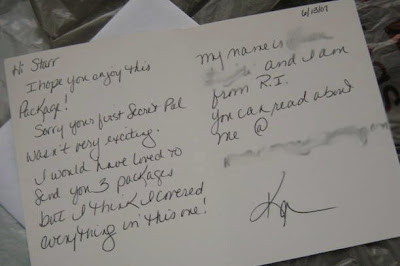 Hi Starr
I hope you enjoy this
Package!
Sorry your first Secret Pal
wasn't very exciting.
I would have loved to
Send you 3 packages
but I think I covered
everything in this one!
6/18/07
My name is
and I am
from R.I.
You can read about
me @